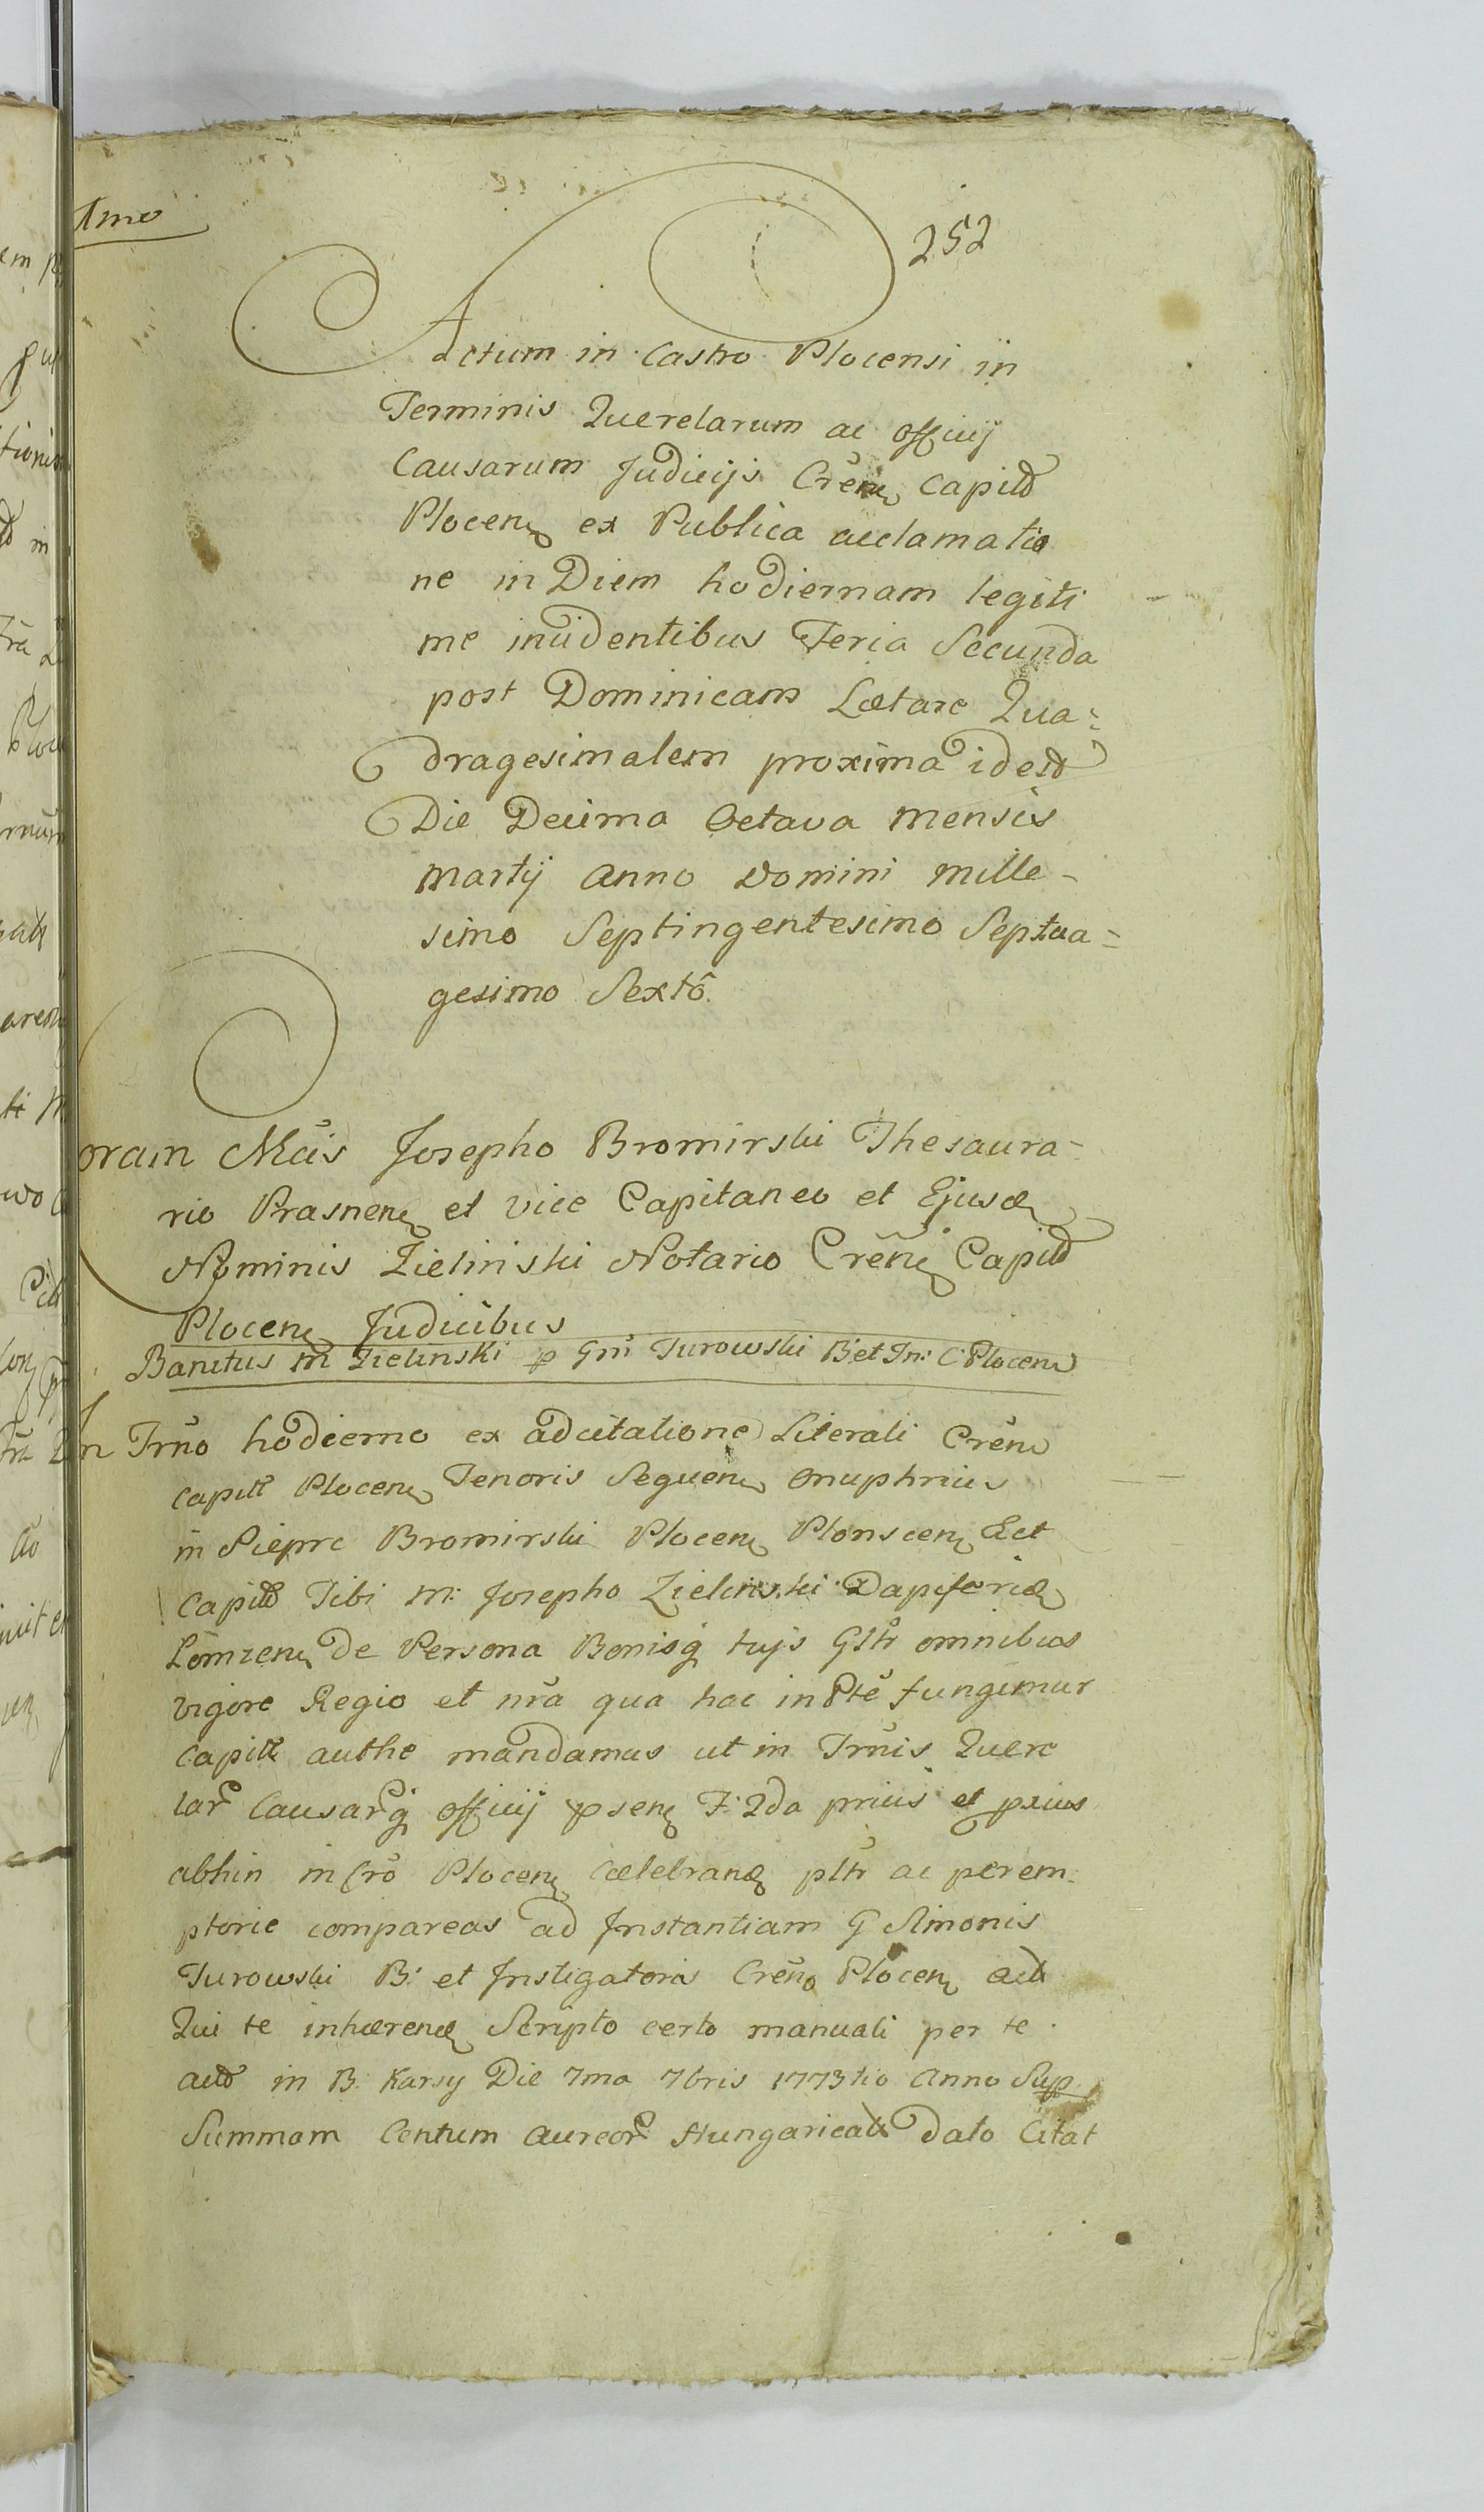 252
Actum in Castro Plocensi in
Terminis Querelarum ac officij
Causarum Judicijs Cren̄ Capitl̄
Plocen̄ ex Publica acclamatio
ne in Diem hodiernam legiti
me incidentibus Feria Secunda
post Dominicam Lætare Qua=
dragesimalem proxima idest
Die Decima Octava Mensis
Martij Anno Domini Mille-
simo Septingentesimo Septua=
gesimo Sextô.
Coram Mcis Josepho Bromirski Thesaura-
rio Prasnen̄ et vice Capitaneo et Ejusd̄
Nominis Zielinski Notario Cren̄ Capitl̄
Plocen̄ Judicibus
Banitus M Zielinski p Gm Turowski B: et In: C: Plocen̄
In Trno hodierno ex adcitatione Literali Cren̄
Capitl̄ Plocen̄ Tenoris Sequen̄ Onuphrius
in Siepre Bromirski Plocen̄ Plonscen̄ Ect
Capitl̄ Tibi M: Josepho Zielinski Dapiferid̄
Lomzen̄ De Persona Bonisq̄ tujs Gltr omnibus
vigore Regio et nra qua hac in Pte fungimur
Capitl̄ authe mandamus ut in Trnis Quere
lar̄ Causarq̄ officij psen̄ F: 2da prius et pxius
abhin in Cro Plocen̄ Cælebrand̄ pltr ac perem-
ptorie compareas ad Instantiam G Simonis
Turowski B: et Instigatoris Cren̄ Plocen̄ act̄
Qui te inhæren̄d Scripto certo manuali per te
in B: Karsy Die 7ma 7bris 1773tio Anno Sup
Summam Centum Aureor̄ Hungarical̄ dato Citat